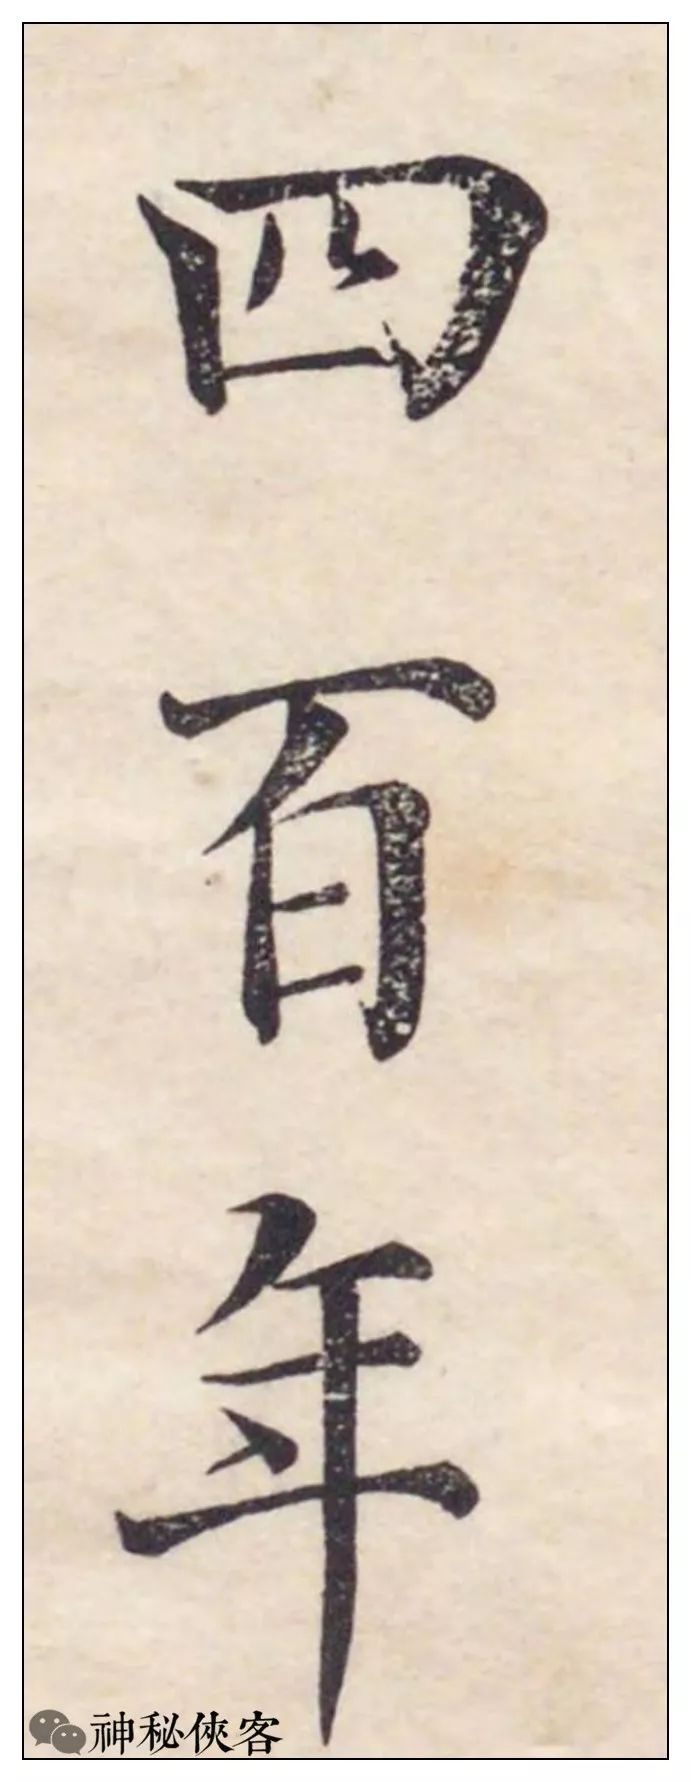 四百年
神秘俠客